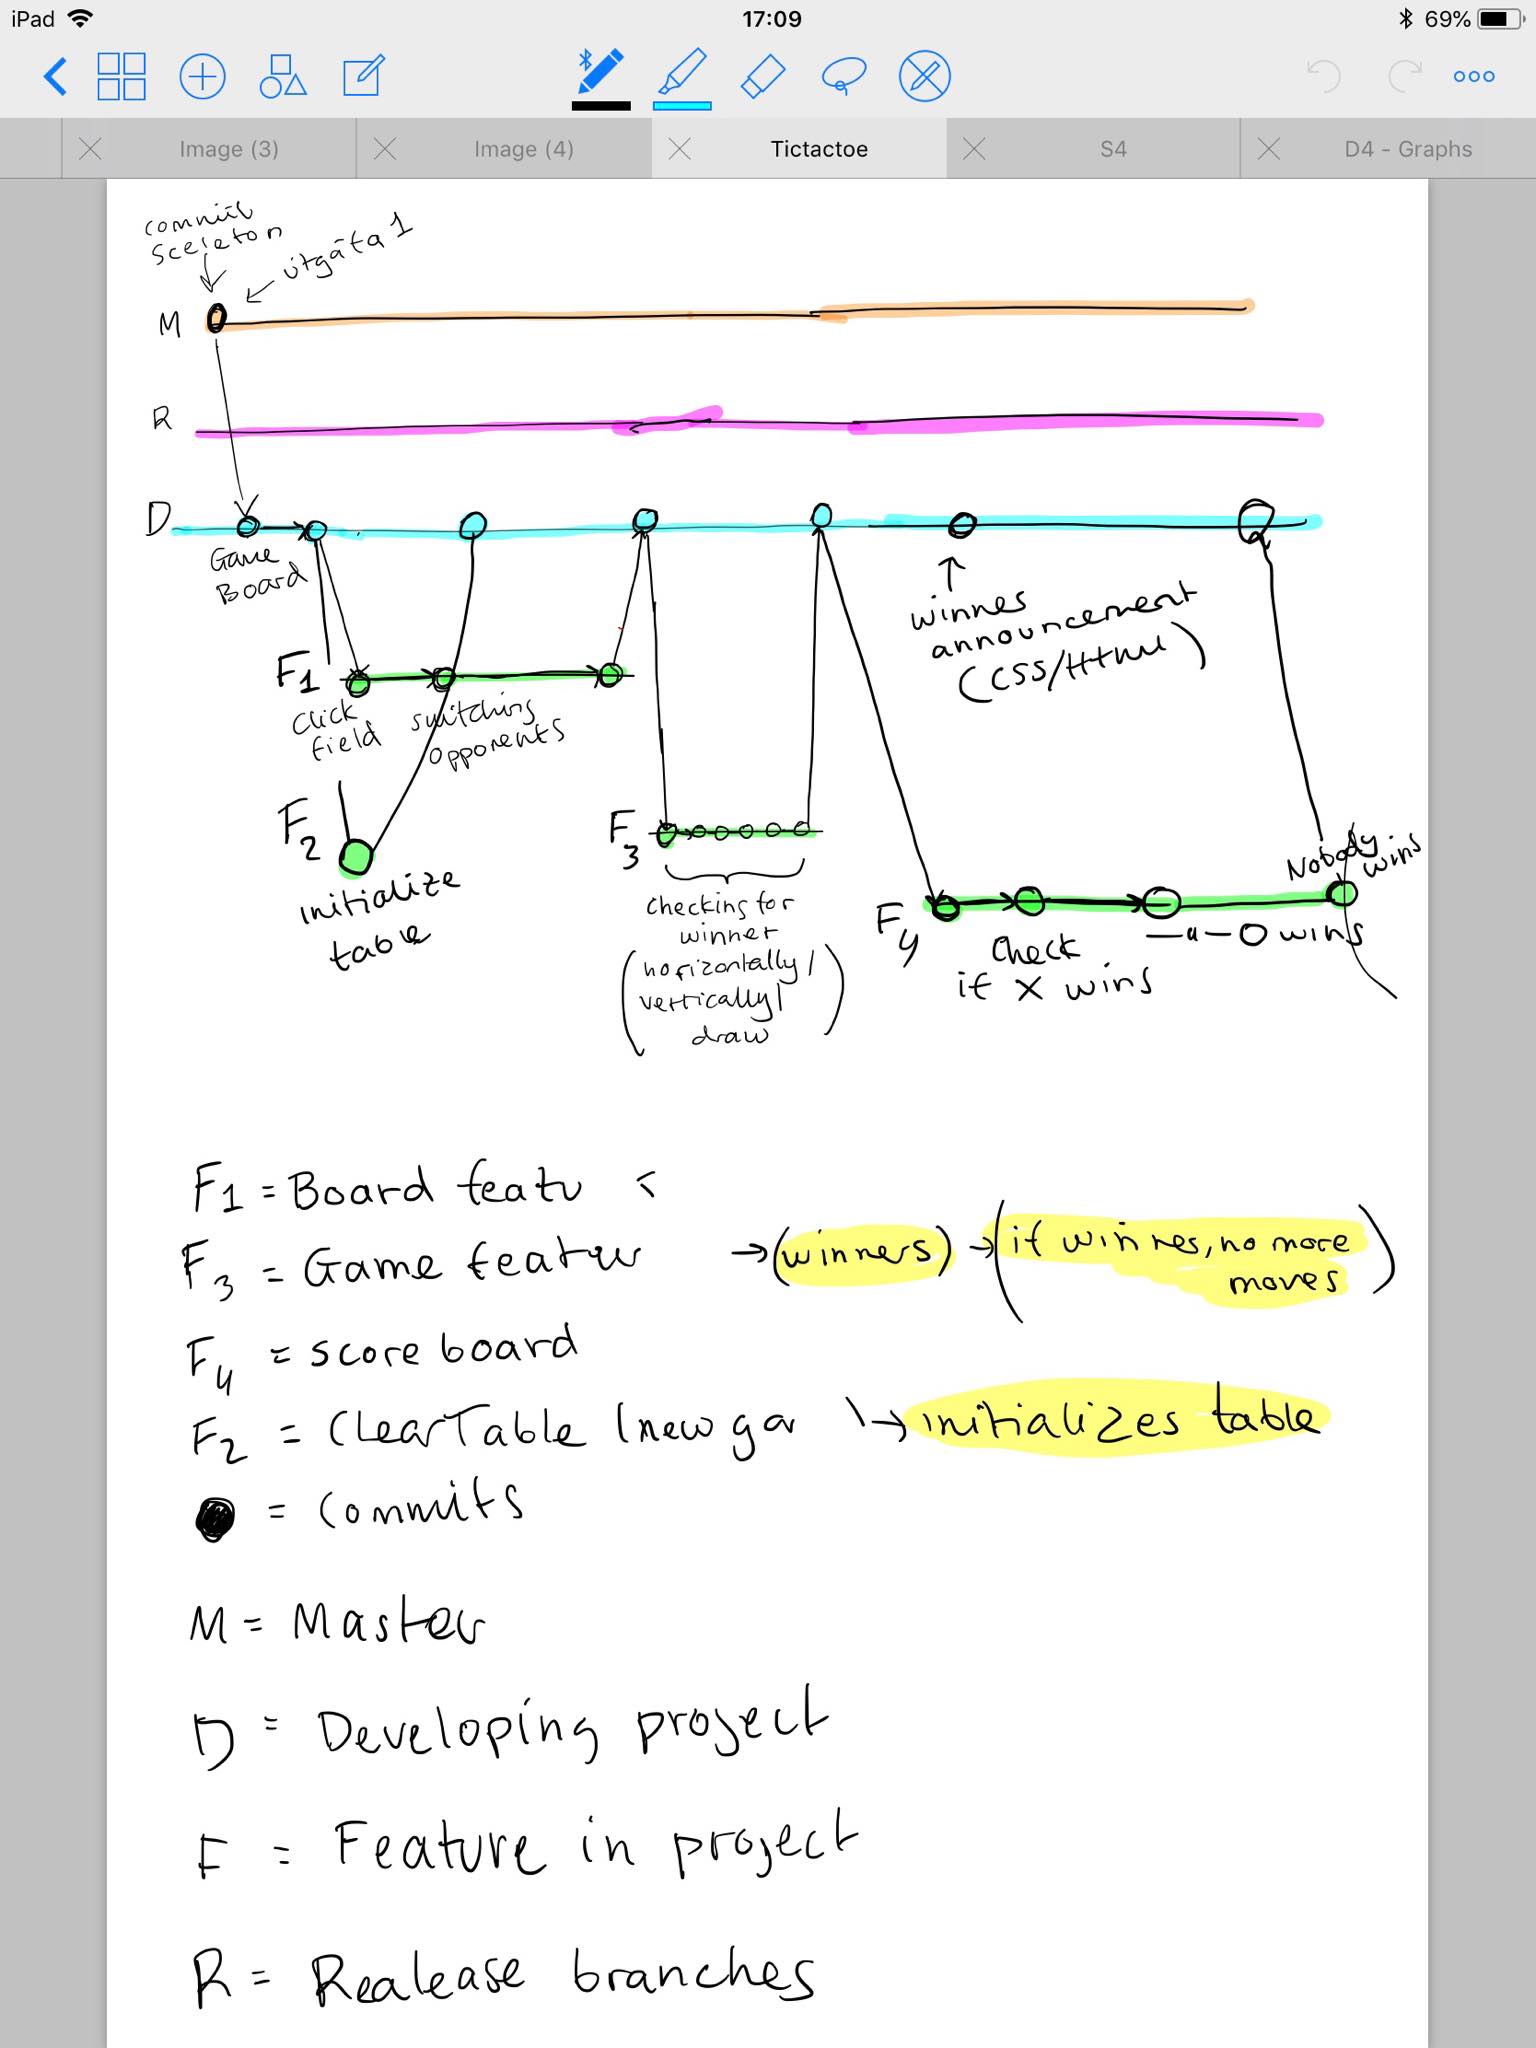 iPad 17:09 69%
Image (3) Image (4) Tictactoe S4 D4 - Graphs
commit
Sceleton
útgáta 1
M
R
D
Game
Board
winnes
announcement
(CSS/Html)
F1
Click
field
switching
opponents
F2
initialize
table
F3
Checking for
winner
(horizontally/
vertically/
draw)
Nobody
wins
F4
Check
if X wins
—"— O wins
F1 = Board featu
F3 = Game featur → (winners) → (if winnes, no more
moves)
F4 = score board
F2 = ClearTable (new ga → initializes table
= Commits
M = Master
D = Developing project
F = Feature in project
R = Realease branches